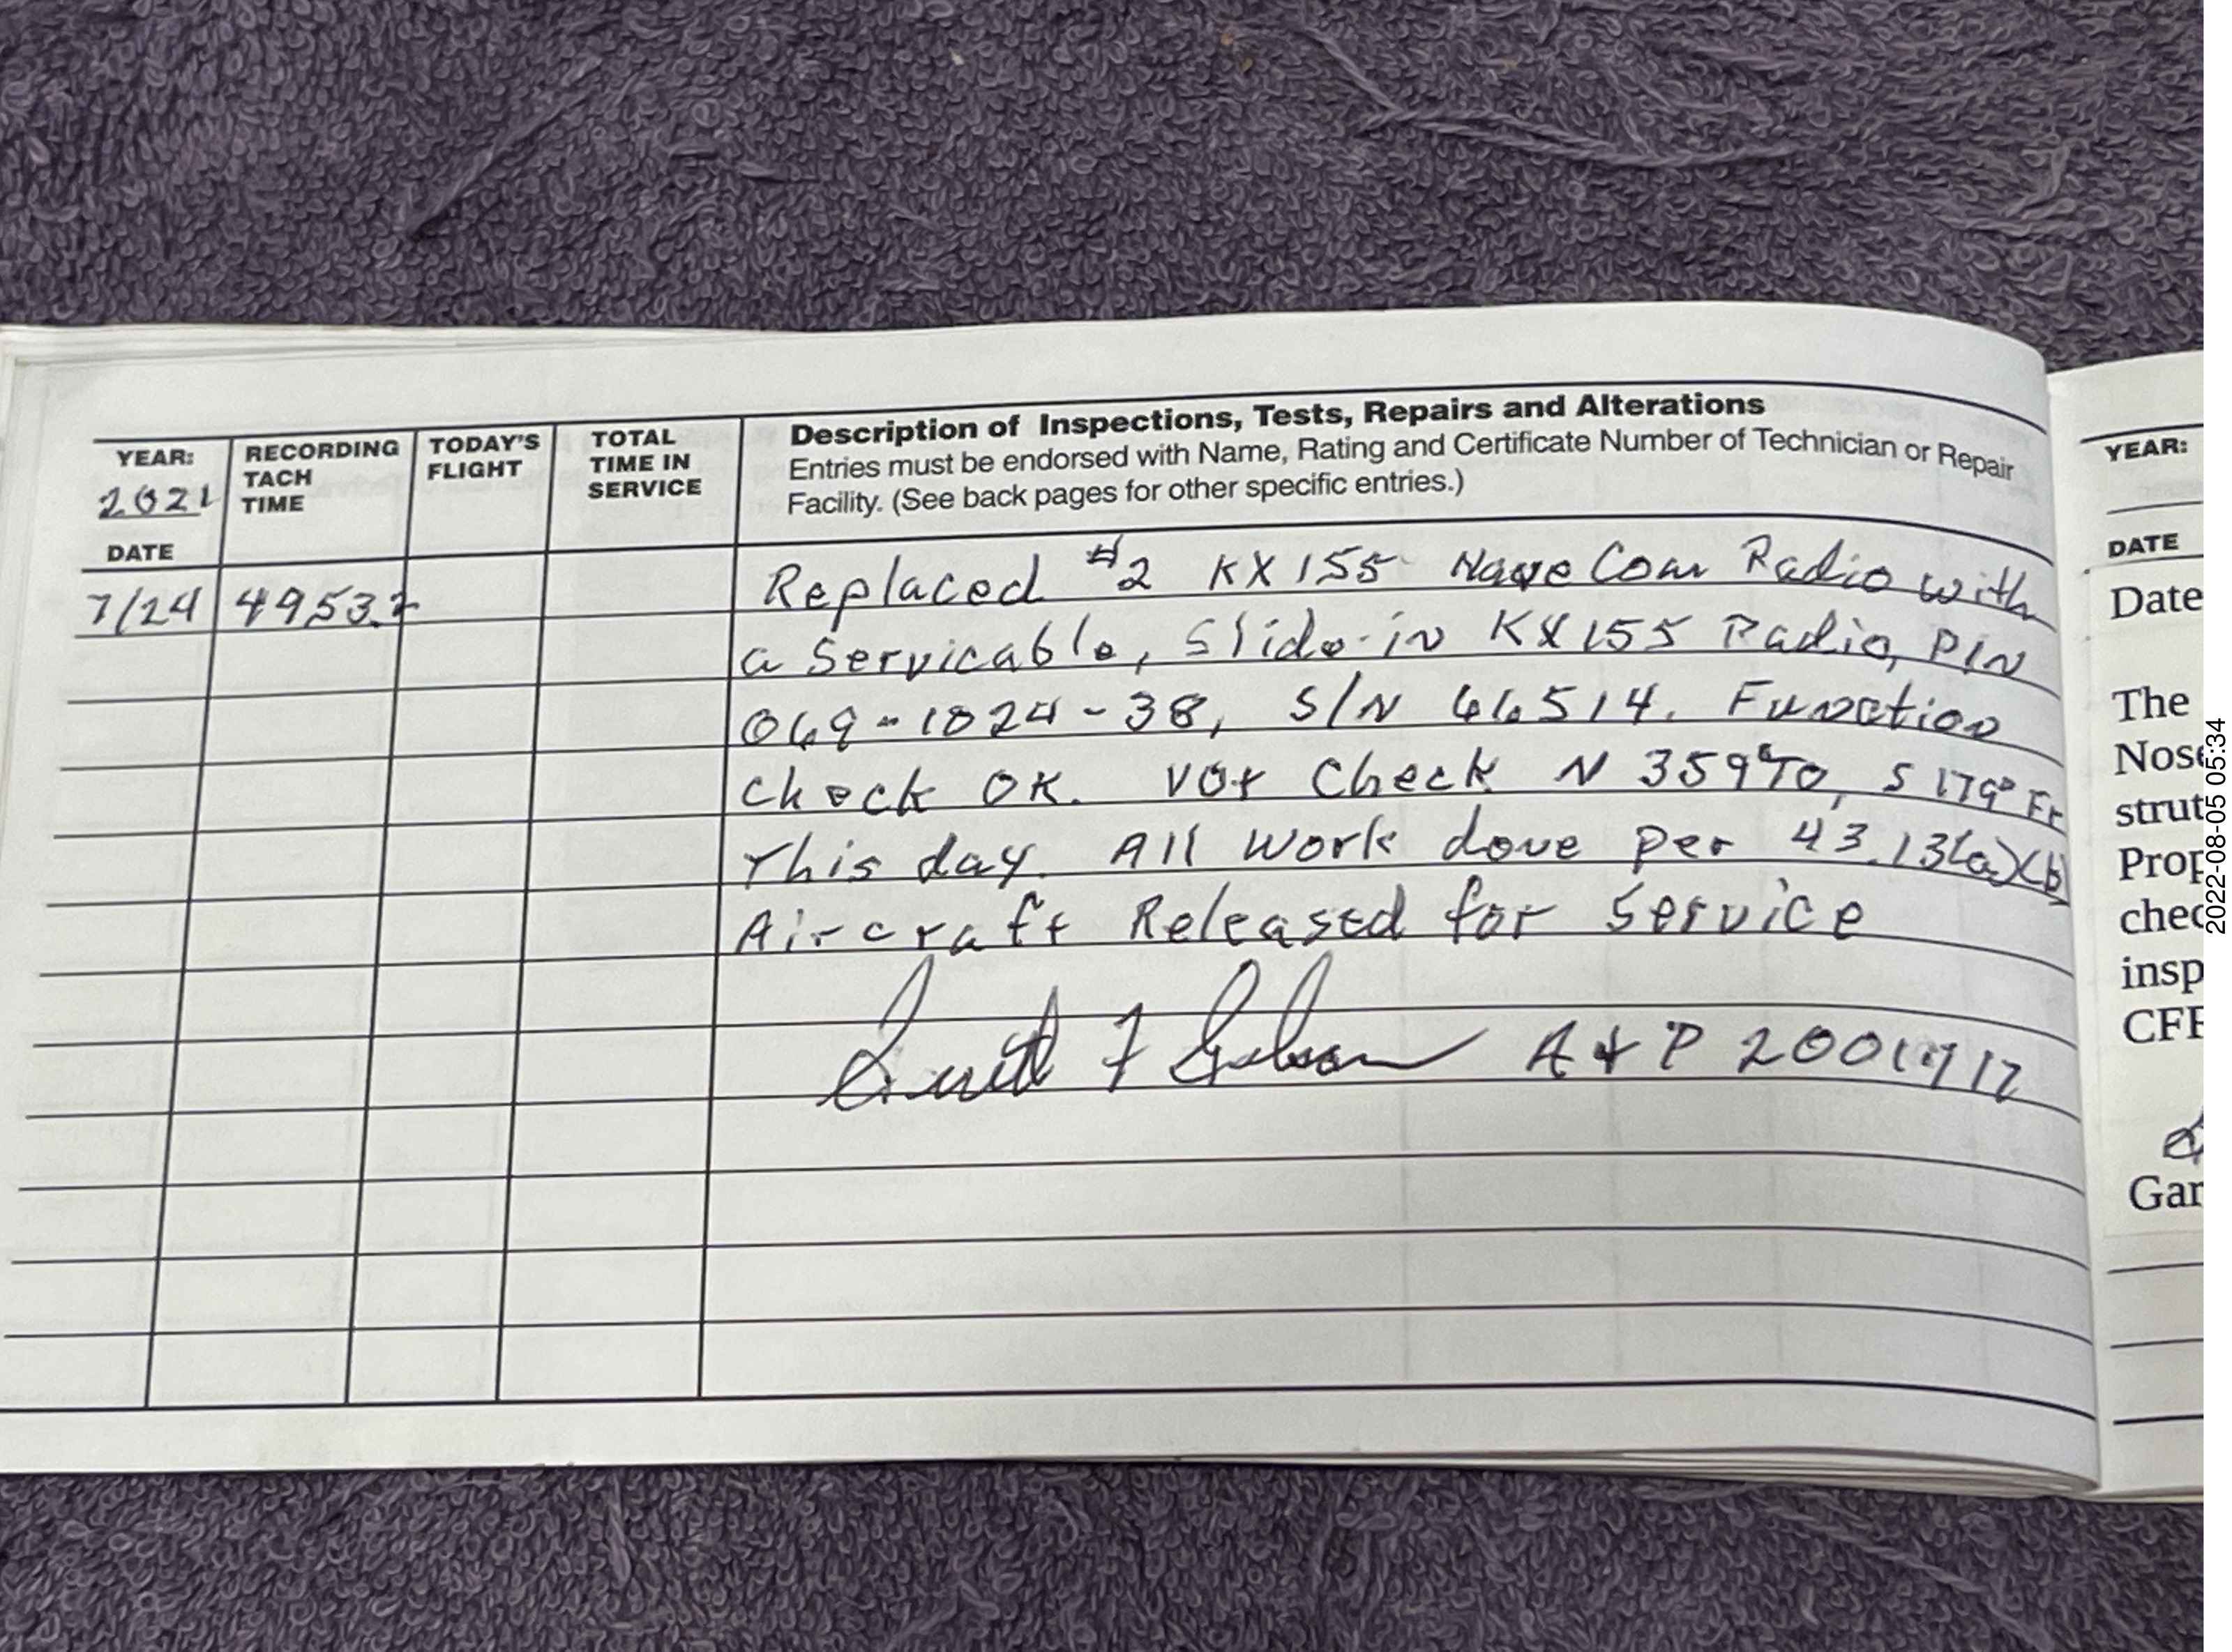 YEAR:
2021
RECORDING
TACH
TIME
TODAY'S
FLIGHT
TOTAL
TIME IN
SERVICE
Description of Inspections, Tests, Repairs and Alterations
Entries must be endorsed with Name, Rating and Certificate Number of Technician or Repair
Facility. (See back pages for other specific entries.)
DATE
7/24 4953.2
Replaced #2 KX155 Nave Com Radio with
a Servicable, Slide-in KX155 Radio, P/N
069-1024-38, S/N 66514. Function
check OK. VOR Check N 359° TO, S 179° Fr
This day. All work done per 43.13(a)(b)
Aircraft Released for Service
A & P
YEAR:
DATE
Date
The
Nose
strut
Prop
chec
insp
CFR
Gar
2022-08-05 05:34